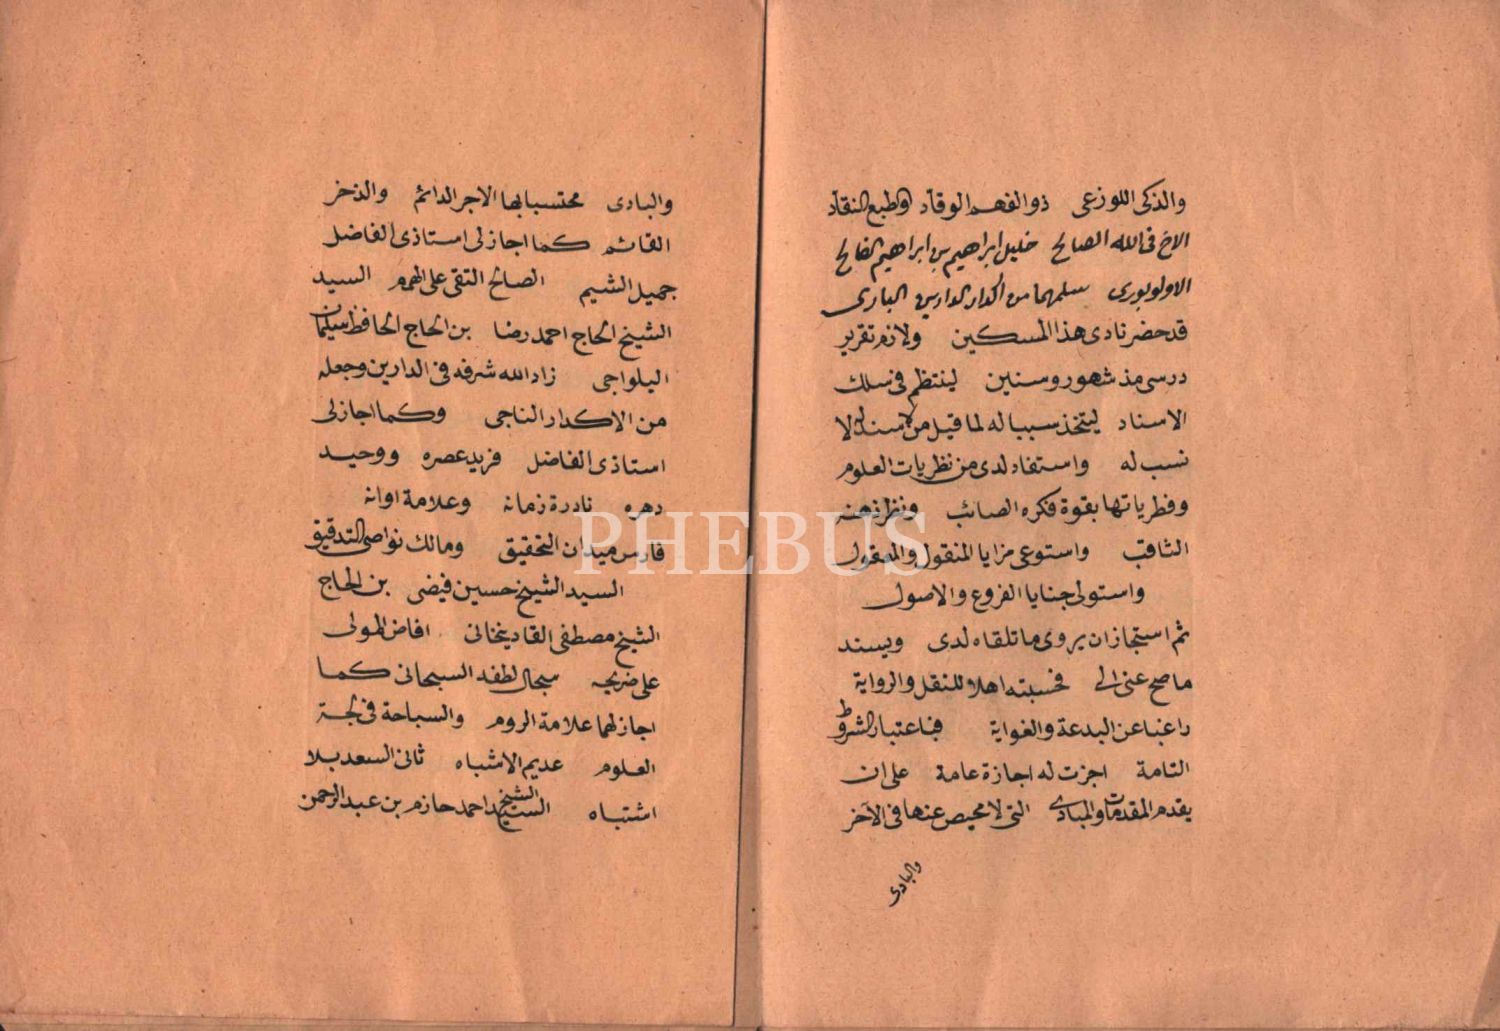 والذكى اللوزعى ذو الفهم الوقاد والطبع النقاد
الاخ فى الله الصالح خليل ابراهيم بن ابراهيم الفالح
الاولوبورى سلمهما من اكدار الدارين البارى
قد حضر نادى هذا المسكين ولازم تقرير
درسى مذ شهور وسنين لينتظم فى سلك
الاسناد ليتخذ سببا له لما قيل من لا سند له لا
نسب له واستفاد لدى من نظريات العلوم
وفطرياتها بقوة فكره الصائب ونظر ذهنه
الثاقب واستوعى مزايا المنقول والمعقول
واستولى جنايا الفروع والاصول
ثم استجاز ان يروى ما تلقاه لدى ويسند
ما صح عنى الى فحسبته اهلا للنقل والرواية
راغبا عن البدعة والغواية فباعتبار الشروط
التامة اجزت له اجازة عامة على ان
يقدم المقدمات والمبادى التى لا محيص عنها فى الآخر
والبادى
والبادى محتسبا بها الاجر الدائم والذخر
القائم كما اجاز لى استاذى الفاضل
جميل الشيم الصالح التقى على الهمم السيد
الشيخ الحاج احمد رضا بن الحاج الحافظ سليمان
اليلواجى زاد الله شرفه فى الدارين وجعله
من الاكدار الناجى وكما اجاز لى
استاذى الفاضل فريد عصره ووحيد
دهره نادرة زمانه وعلامة اوانه
فارس ميدان التحقيق ومالك نواصى التدقيق
السيد الشيخ حسين فيضى بن الحاج
الشيخ مصطفى القاديخانى افاض المولى
على ضريحه سجال لطفه السبحانى كما
اجاز لهما علامة الروم والسباحة فى لجة
العلوم عديم الاشباه ثانى السعد بلا
اشتباه السيد الشيخ احمد حازم بن عبد الرحمن
PHEBUS